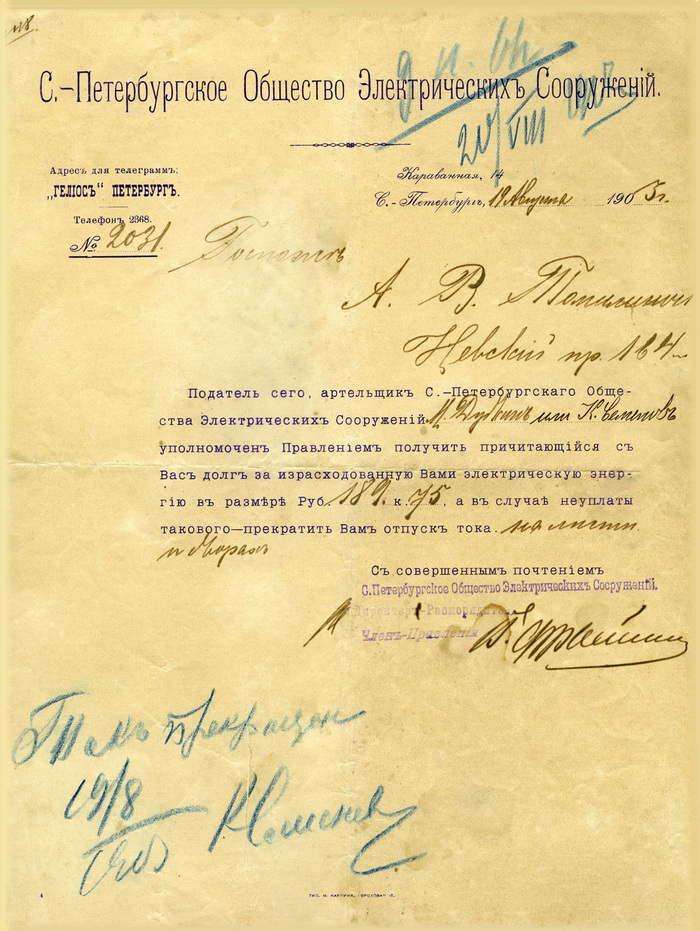 С.-Петербургское Общество Электрическихъ Сооруженій.
20/VIII
Адресъ для телеграммъ:
„ГЕЛІОСЪ“ ПЕТЕРБУРГЪ.
Телефонъ 2368.
№ 2031.
Караванная, 14
С.-Петербургъ, 19 Августа 1903 г.
А. В.
Невский пр.
Податель сего, артельщикъ С.-Петербургскаго Обще-
ства Электрическихъ Сооруженій или К. Семеновъ
уполномоченъ Правленіемъ получить причитающійся съ
Васъ долгъ за израсходованную Вами электрическую энер-
гію въ размѣрѣ Руб. 189 к. 75, а въ случаѣ неуплаты
такового—прекратить Вамъ отпускъ тока.
и дворахъ
Съ совершеннымъ почтеніемъ
С.Петербургское Общество Электрическихъ Сооруженій.
Директоръ-Распорядитель
Членъ-Правленія
Токъ Прекращен
19/8
903
К Семенов